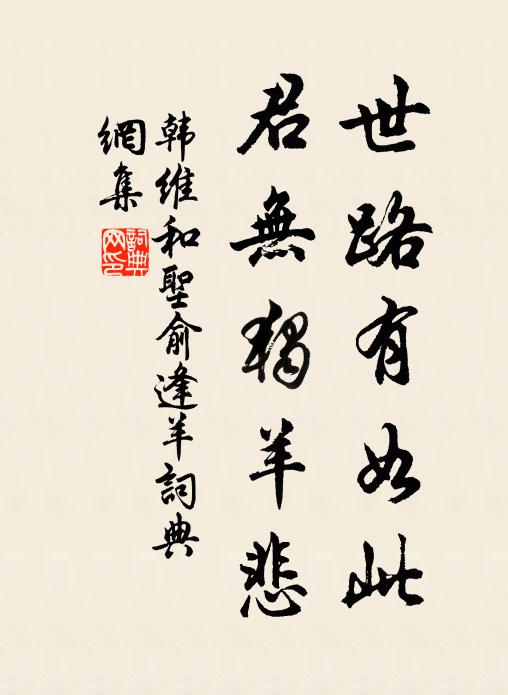 世路有如此
君無獨羊悲
韓維和聖俞逢羊詞典
網集
詞典網印